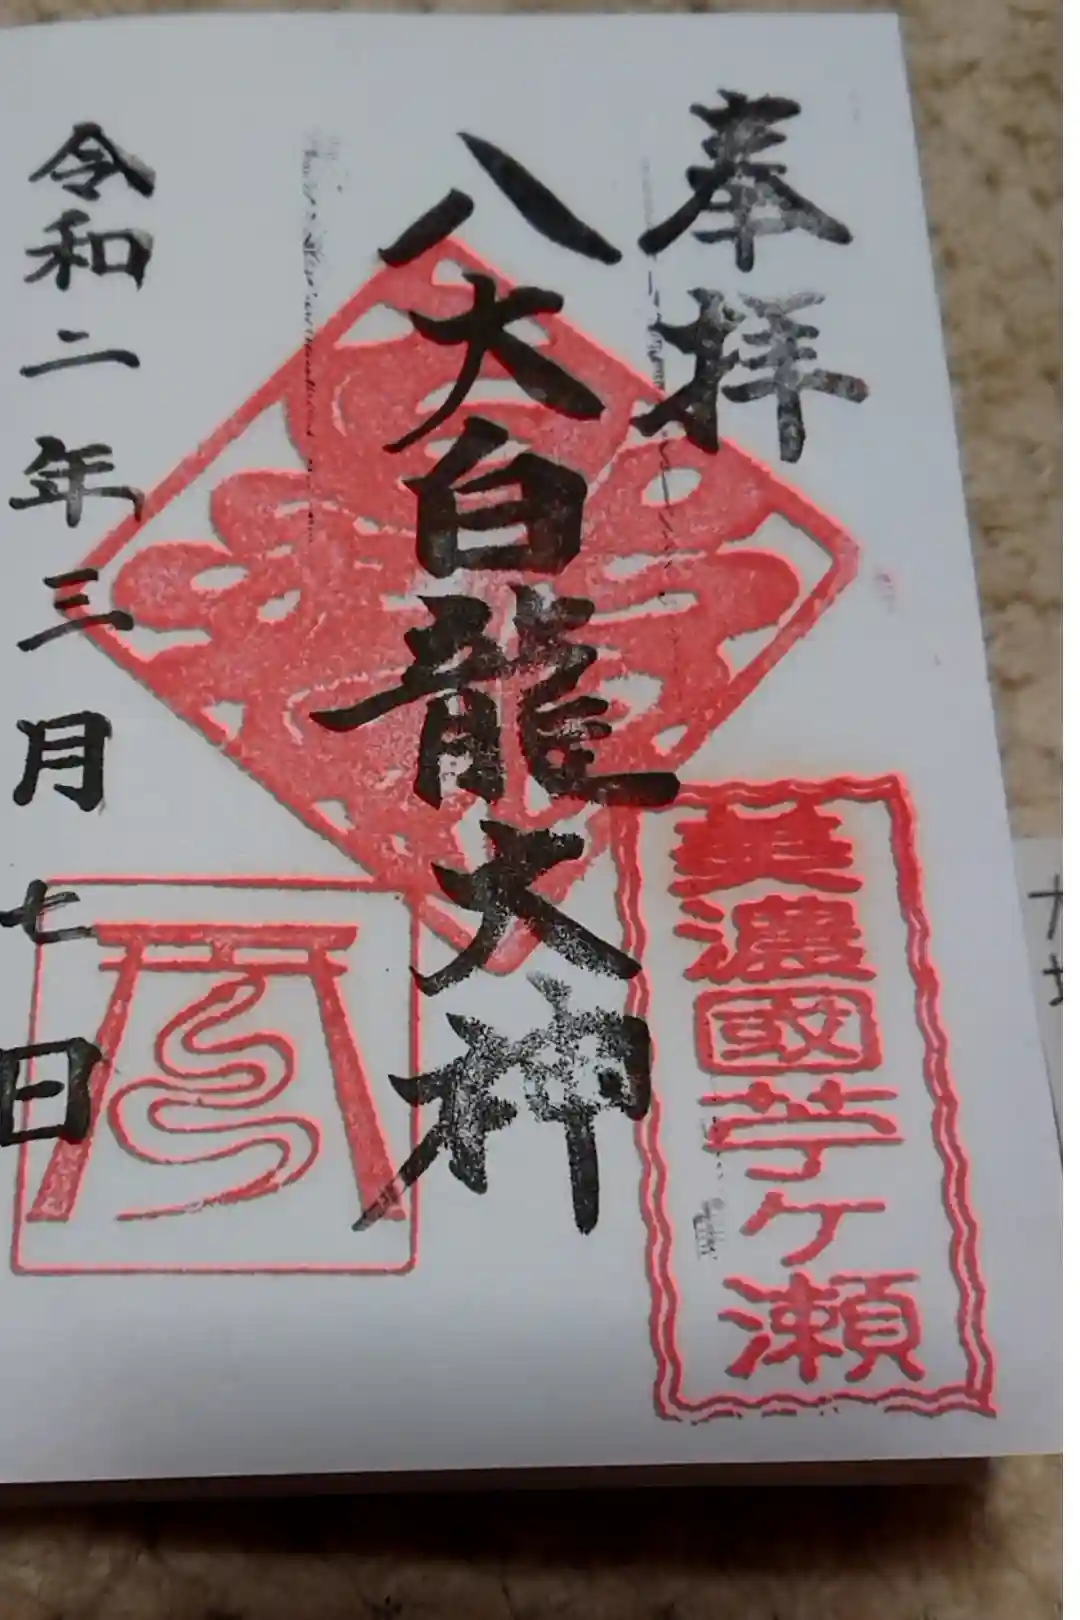 奉拝
美濃國苧ケ瀬
八大白龍大神
令和二年三月七日